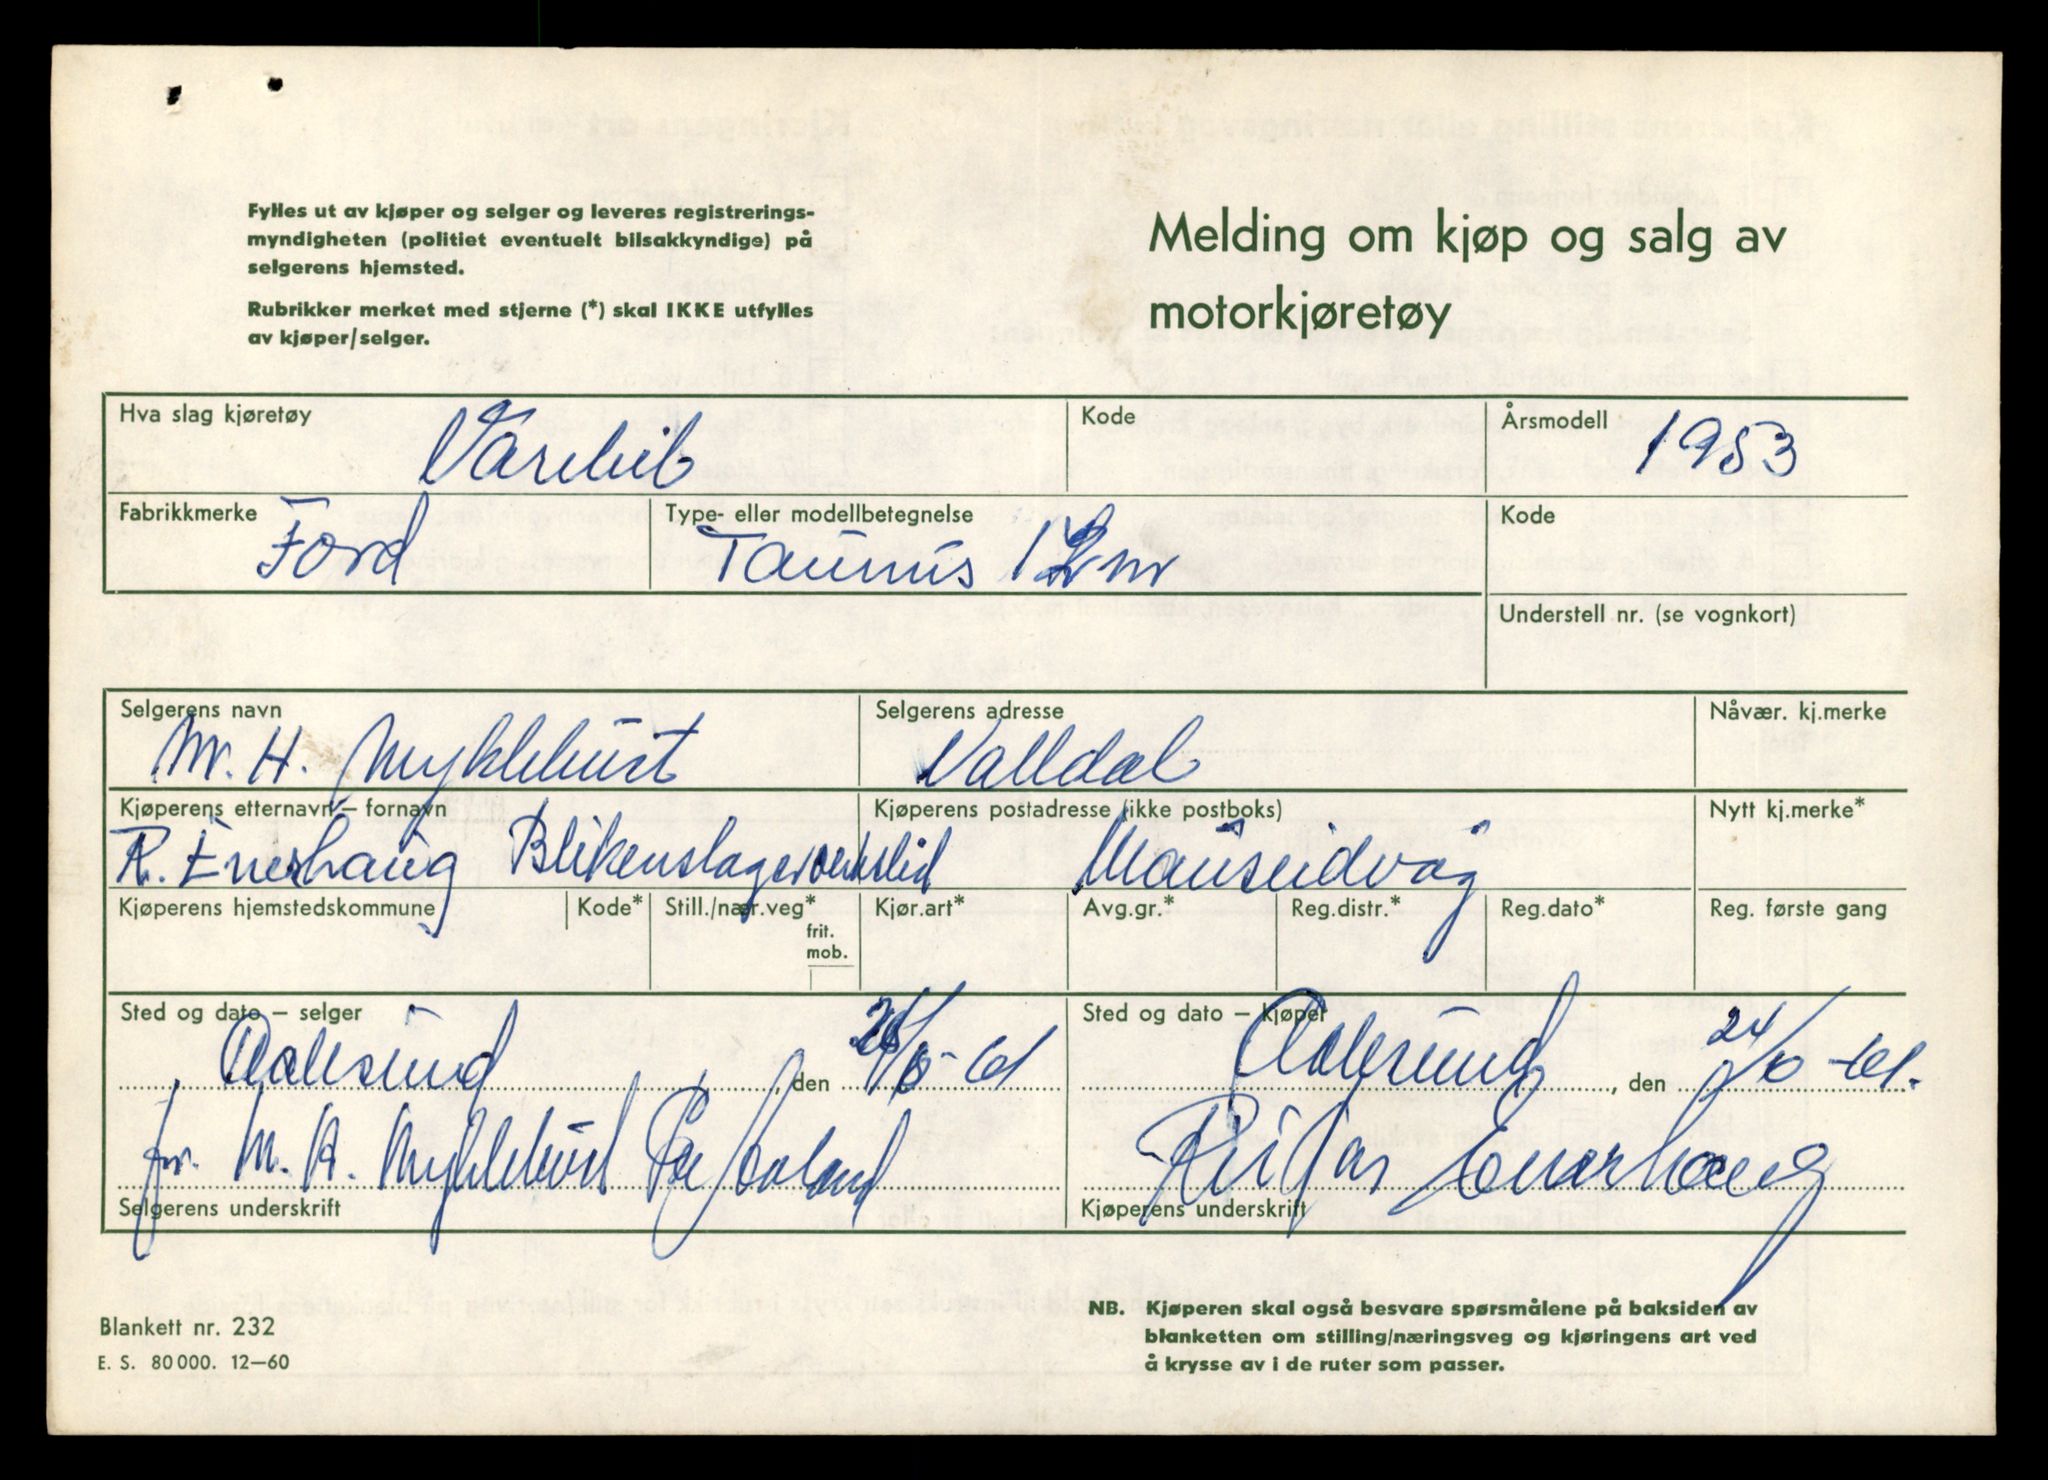 Fylles ut av kjøper og selger og leveres registrerings-
myndigheten (politiet eventuelt bilsakkyndige) på
selgerens hjemsted.
Rubrikker merket med stjerne (*) skal IKKE utfylles
av kjøper/selger.
Melding om kjøp og salg av
motorkjøretøy
Hva slag kjøretøy Varebil Kode Årsmodell 1953
Fabrikkmerke Ford Type- eller modellbetegnelse Taunus 12 m Kode
Understell nr. (se vognkort)
Selgerens navn M. H. Myklebust Selgerens adresse Valldal Nåvær. kj.merke
Kjøperens etternavn – fornavn R. Enershaug Blikenslagerverksted Kjøperens postadresse (ikke postboks) Mauseidvåg Nytt kj.merke*
Kjøperens hjemstedskommune Kode* Still./nær.veg* frit. mob. Kjør.art* Avg.gr.* Reg.distr.* Reg.dato* Reg. første gang
Sted og dato – selger Aalesund, den /6-61 Sted og dato – kjøper Aalesund, den 24/6-61.
fr. M. H. Myklebust
Selgerens underskrift Kjøperens underskrift
Blankett nr. 232
E. S. 80 000. 12–60
NB. Kjøperen skal også besvare spørsmålene på baksiden av
blanketten om stilling/næringsveg og kjøringens art ved
å krysse av i de ruter som passer.